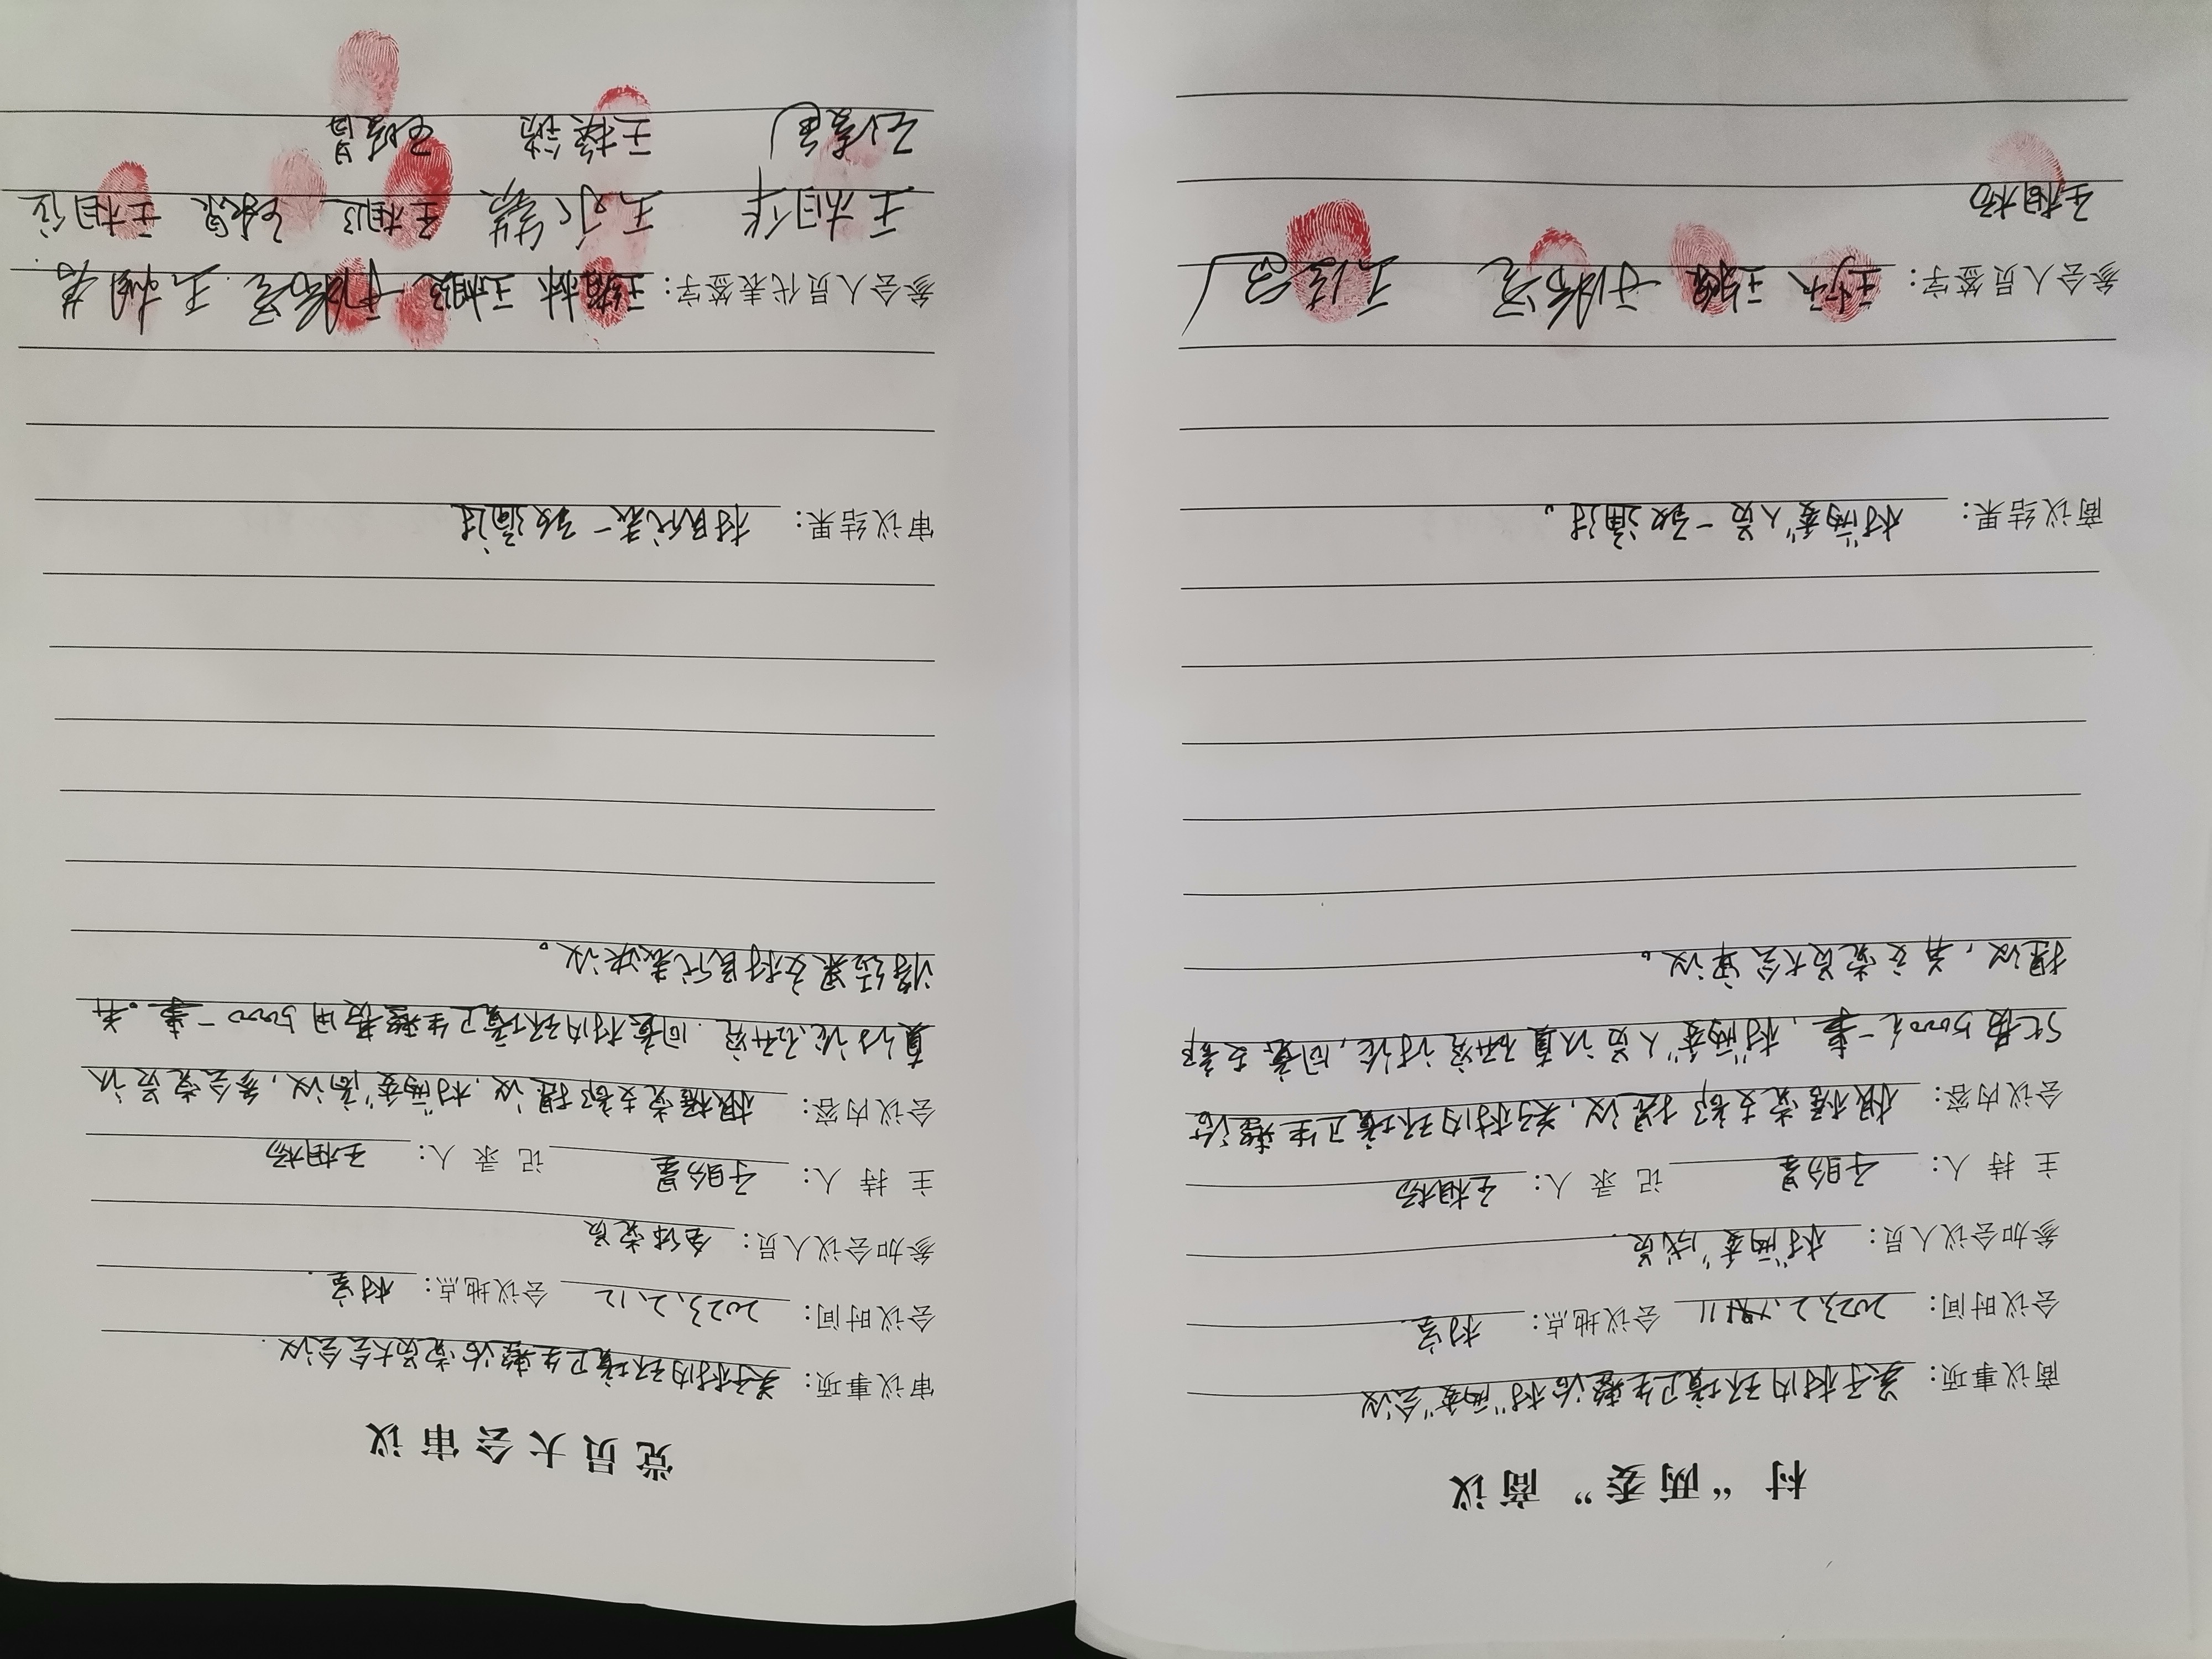 村“两委”商议
商议事项: 关于村内环境卫生整治村“两委”会议
会议时间: 2023.2.11 会议地点: 村室.
参加会议人员: 村“两委”成员.
主持人: 于盼星 记录人: 王相杨
会议内容: 根据党支部提议,关于村内环境卫生整治
费5000元一事,村“两委”人员认真研究讨论,同意支部
提议,并交党员大会审议。
商议结果: 村“两委”人员一致通过。
参会人员签字: 于盼星
王相杨
党员大会审议
审议事项: 关于村内环境卫生整治党员大会会议.
会议时间: 2023、2、12 会议地点: 村室.
参加会议人员: 全体党员
主持人: 于盼星 记录人: 王相杨
会议内容: 根据党支部提议,村“两委”商议,参会党员认
真讨论、研究.同意村内环境卫生整费用5000一事。并
将结果交村民代表决议。
审议结果: 村民代表一致通过
参会人员代表签字: 于盼星
王相华 王永泉 王相位
王凌色 王换锁 王凌昌